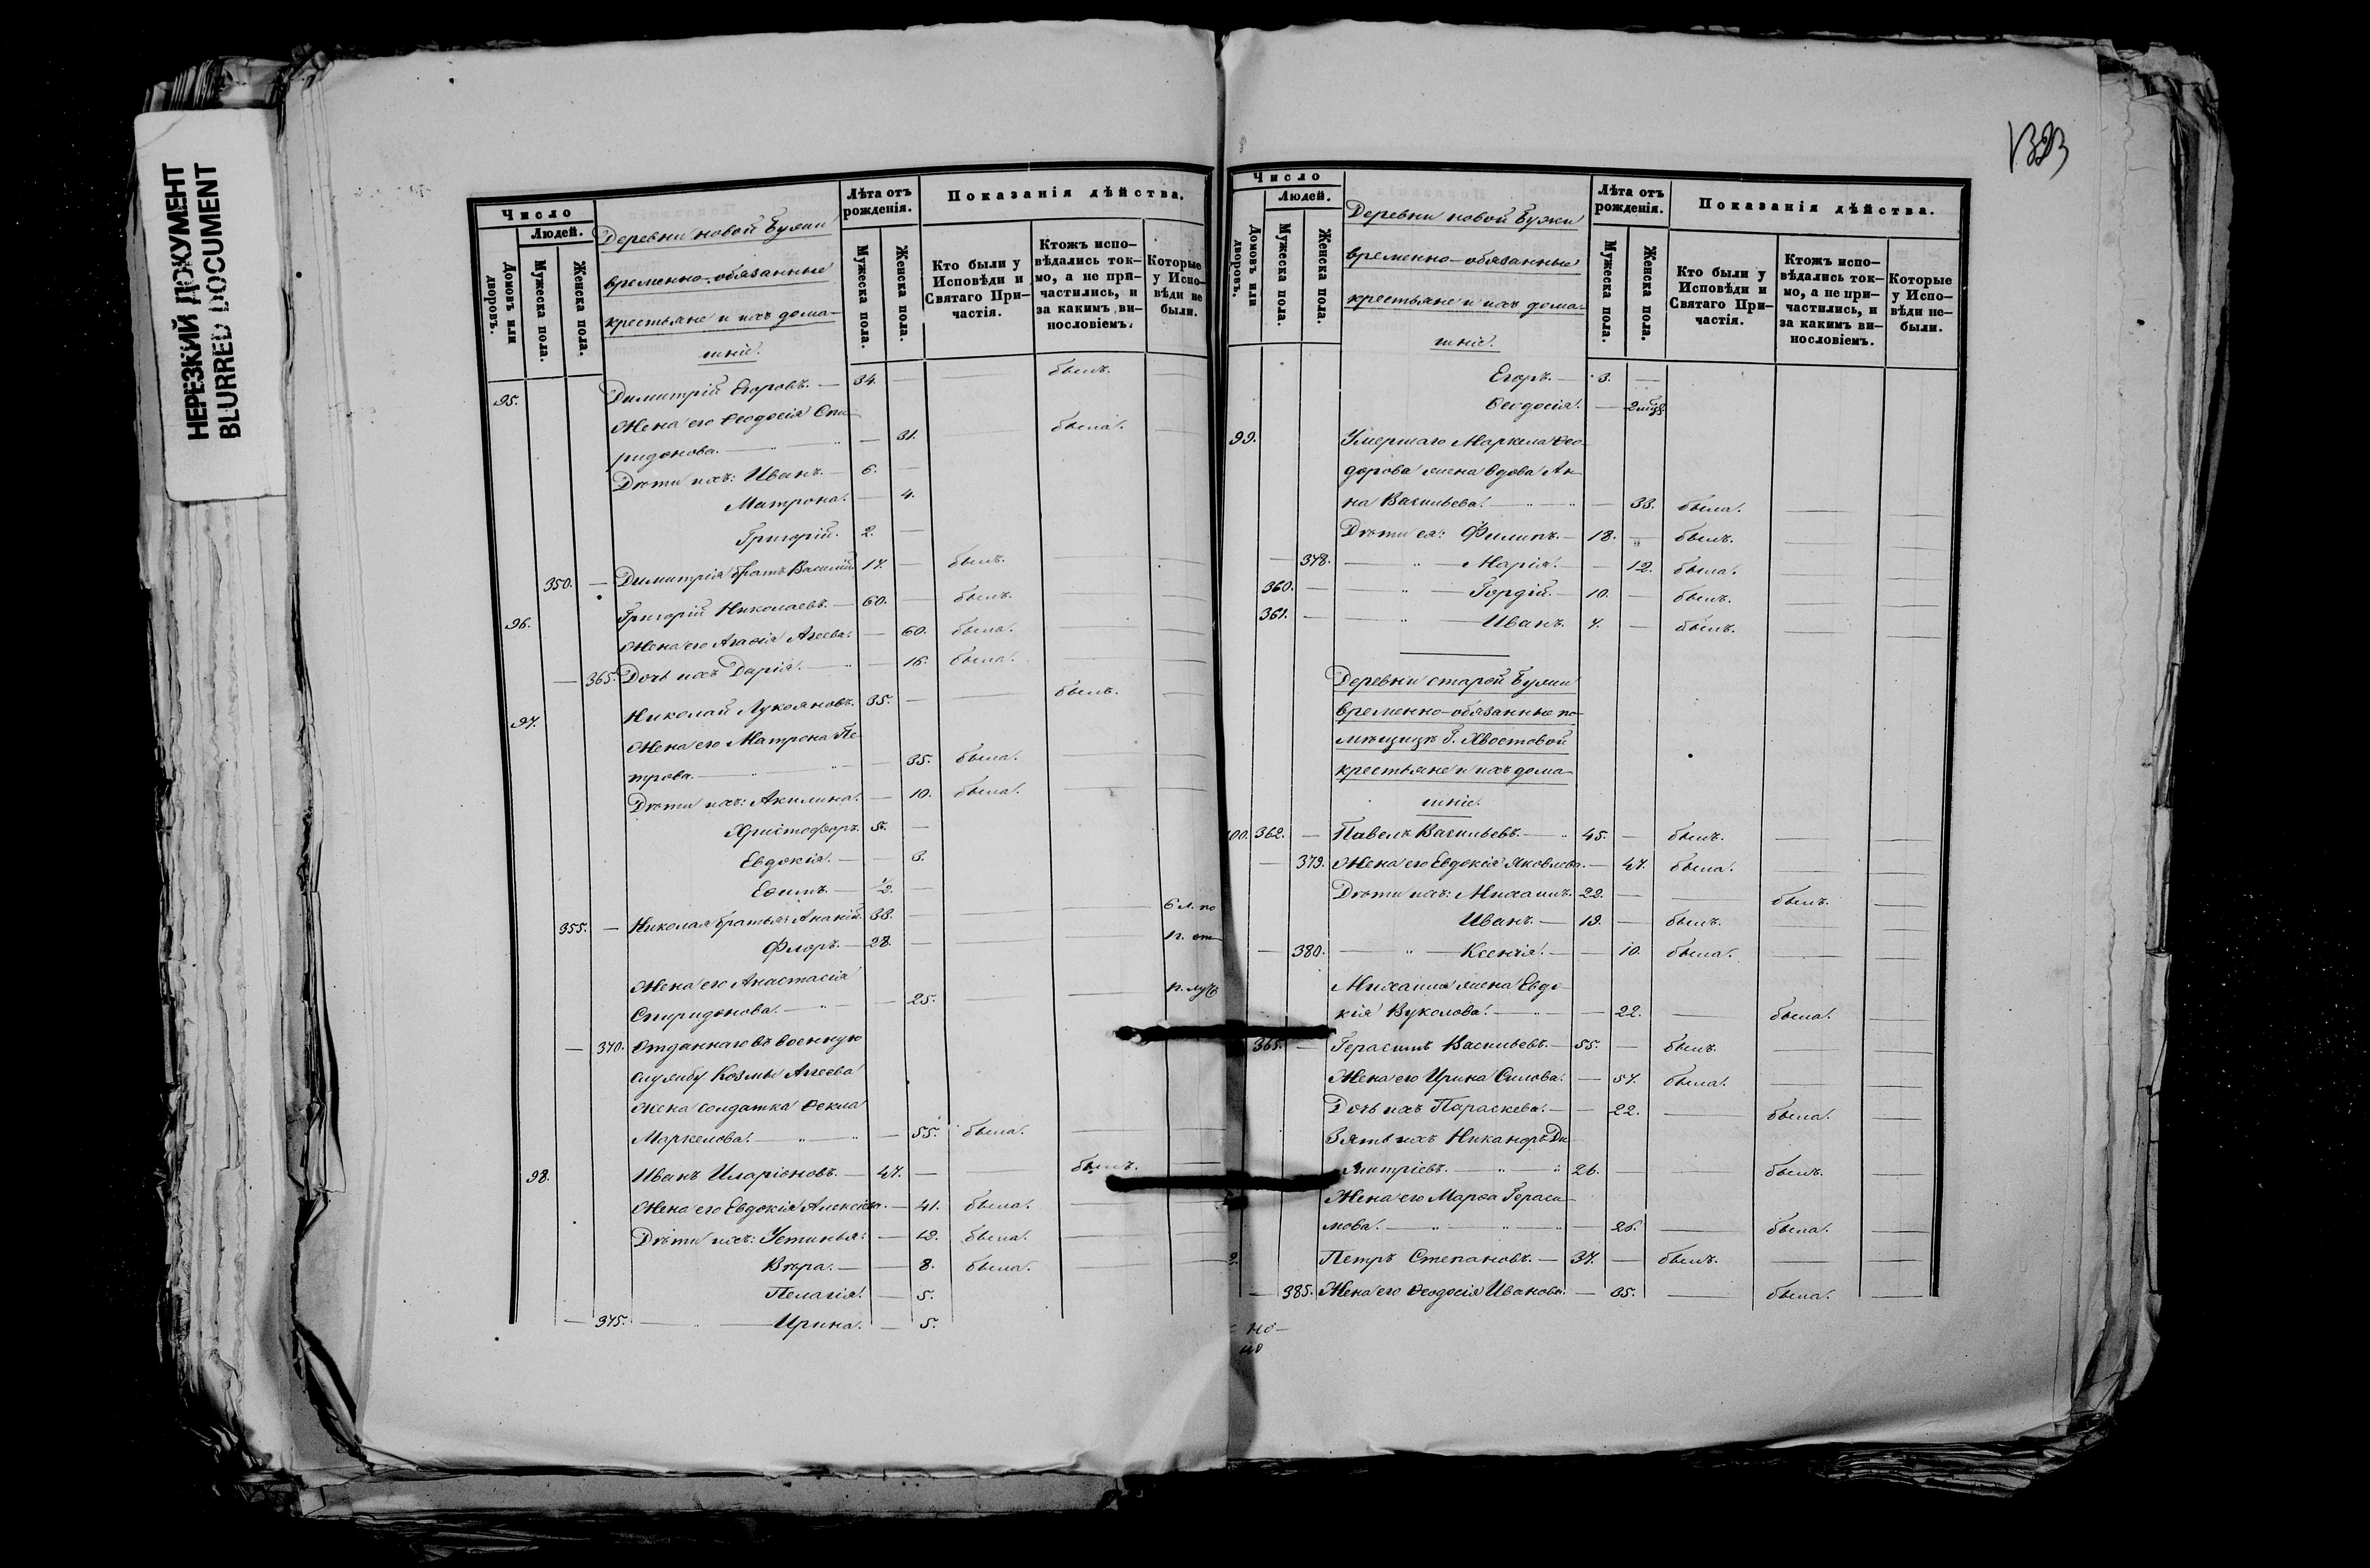 НЕРЕЗКИЙ ДОКУМЕНТ
BLURRED DOCUMENT
Число
Людей.
Домовъ или дворовъ.
Мужеска пола.
Женска пола.
Деревни новой Бужи
временно-обязанные
крестьяне и ихъ дома-
шніе.
Лѣта отъ рожденія.
Мужеска пола.
Женска пола.
Показанія дѣйства.
Кто были у Исповѣди и Святаго Причастія.
Ктожъ испо-
вѣдались ток-
мо, а не при-
частились, и
за какимъ ви-
нословіемъ.
Которые
у Испо-
вѣди не
были.
95. Димитрій Егоровъ. — 34. — — былъ. —
Жена его Ѳеодосія Спи-
ридонова. — — 31. — была. —
Дѣти ихъ: Иванъ. — 6. —
Матрона. — 4.
Григорій. 2. —
350. — Димитрія братъ Василій 17. — былъ. — —
96. Григорій Николаевъ. — 60. — былъ. — —
Жена его Агаѳія Агеева. — 60. была. — —
— 365. Дочь ихъ Дарія. — — 16. была. — —
97. Николай Лукояновъ. 35. — — былъ. —
Жена его Матрона Пе-
трова. — — 35. была. — —
Дѣти ихъ: Акилина. — 10. была. — —
Христофоръ. 5. —
Евдокія. — — 3.
Ефимъ. — 1/2. —
355. — Николая братья: Ананій. 33. — — — 6 л. по
Флоръ. — 28. — — — п. от
Жена его Анастасія
Спиридонова. — — 25. — —
— 370. Отданнаго въ военную
службу Козмы Агеева
жена солдатка Ѳекла
Маркелова. — — 55. была. — —
98. Иванъ Иларіоновъ. — 47. — — былъ. —
Жена его Евдокія Алексіева. — 41. была. — —
Дѣти ихъ: Устинья. — 12. была. — —
Вѣра. — — 8. была. — —
Пелагія. — 5.
— 375. — Ирина. — 5.
Число
Людей.
Домовъ или дворовъ.
Мужеска пола.
Женска пола.
Деревни новой Бужи
временно-обязанные
крестьяне и ихъ дома-
шніе.
Лѣта отъ рожденія.
Мужеска пола.
Женска пола.
Показанія дѣйства.
Кто были у
Исповѣди и
Святаго При-
частія.
Ктожъ испо-
вѣдались ток-
мо, а не при-
частились, и
за какимъ ви-
нословіемъ.
Которые
у Испо-
вѣди не-
были.
Егоръ. — 3. —
Ѳеодосія. —
99. Умершаго Маркела Ѳео-
дорова жена вдова Ан-
на Васильева. — — 33. была. — —
Дѣти ея: Филипъ. — 18. — былъ. — —
— 378. — Марія. — — 12. была. — —
360. — — Гордій. — 10. — былъ. — —
361. — — Иванъ. 7. — былъ. — —
Деревни старой Бужи
временно-обязанные по-
мѣщицѣ Г. Хвостовой
крестьяне и ихъ дома-
шніе.
100. 362. — Павелъ Васильевъ. — 45. — былъ. — —
— 379. Жена его Евдокія Яковлева. — 47. была. — —
Дѣти ихъ: Михаилъ. 22. — — былъ. —
Иванъ. — 19. — былъ. — —
— 380. — Ксенія. — — 10. была. — —
Михаила жена Евдо-
кія Вуколова. — — 22. — была. —
365. — Герасимъ Васильевъ. — 55. — былъ. — —
Жена его Ирина Силова. — 57. была. — —
Дочь ихъ Параскева. — — 22. — была. —
Зять ихъ Никаноръ Ди-
митріевъ. — 26. — — былъ. —
Жена его Марѳа Гераси-
мова. — — 26. — была. —
Петръ Степановъ. — 37. — былъ. — —
— 385. Жена его Ѳеодосія Иванова. — 35. — была. —